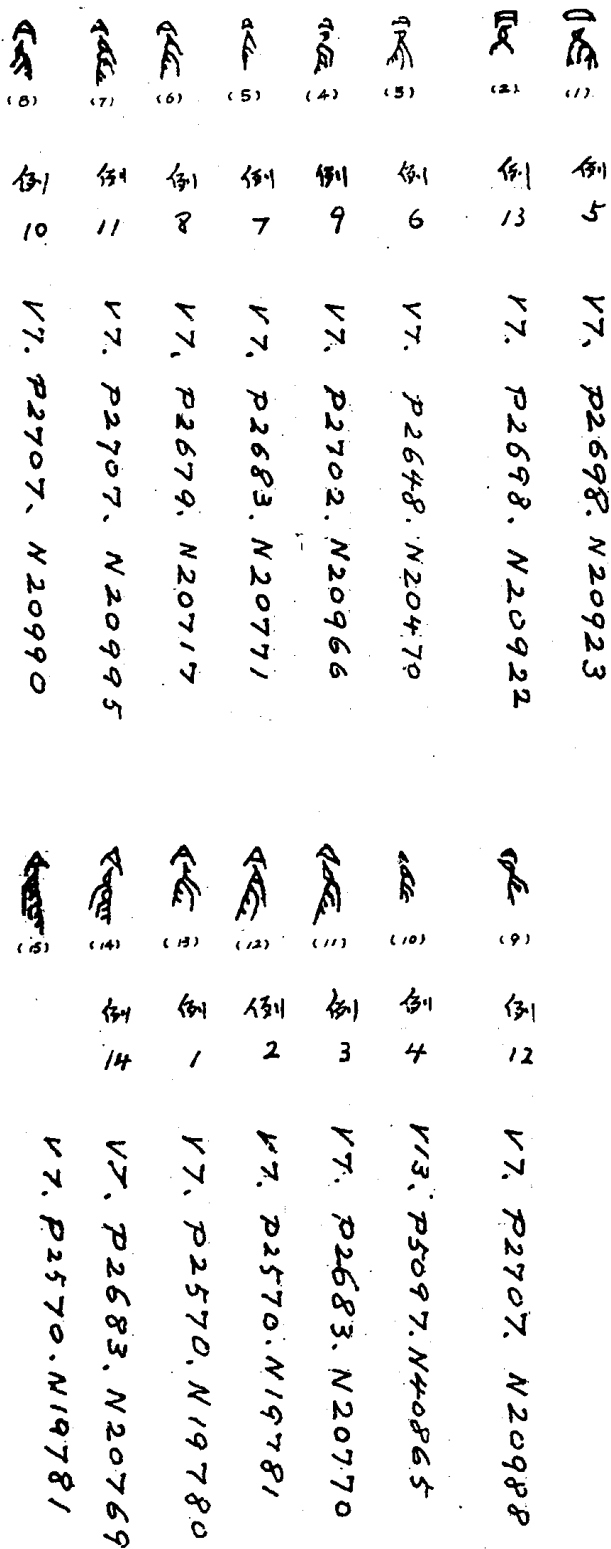 (1) 例5 V7、P2698. N20923
(2) 例13 V7. P2698. N20922
(3) 例6 V7. P2648. N20470
(4) 例9 V7. P2702. N20966
(5) 例7 V7、P2683. N20771
(6) 例8 V7、P2679. N20717
(7) 例11 V7. P2707、N20995
(8) 例10 V7. P2707、N20990
(9) 例12 V7. P2707. N20988
(10) 例4 V13、P5097. N40865
(11) 例3 V7. P2683. N20770
(12) 例2 V7. P2570. N19781
(13) 例1 V7、P2570、N19780
(14) 例14 V7、P2683. N20769
(15) V7. P2570. N19781